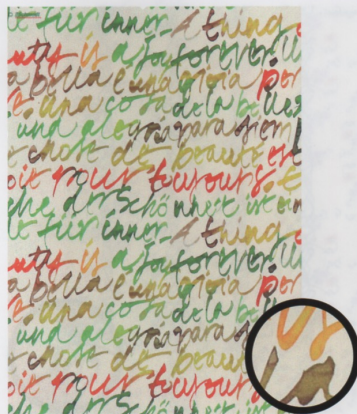 te für immer. A thing o
auty is a joy forever. U
a bella è una gioia per
una cosa de la belle
una alegría para siem
chose de beauté est
oie pour toujours. E
che der Schönheit ist ein
te für immer. A thing o
auty is a joy forever. U
a bella è una gioia per
una cosa de la bel
una alegría para
chose de beaut
oie pour toujour
che der Schön